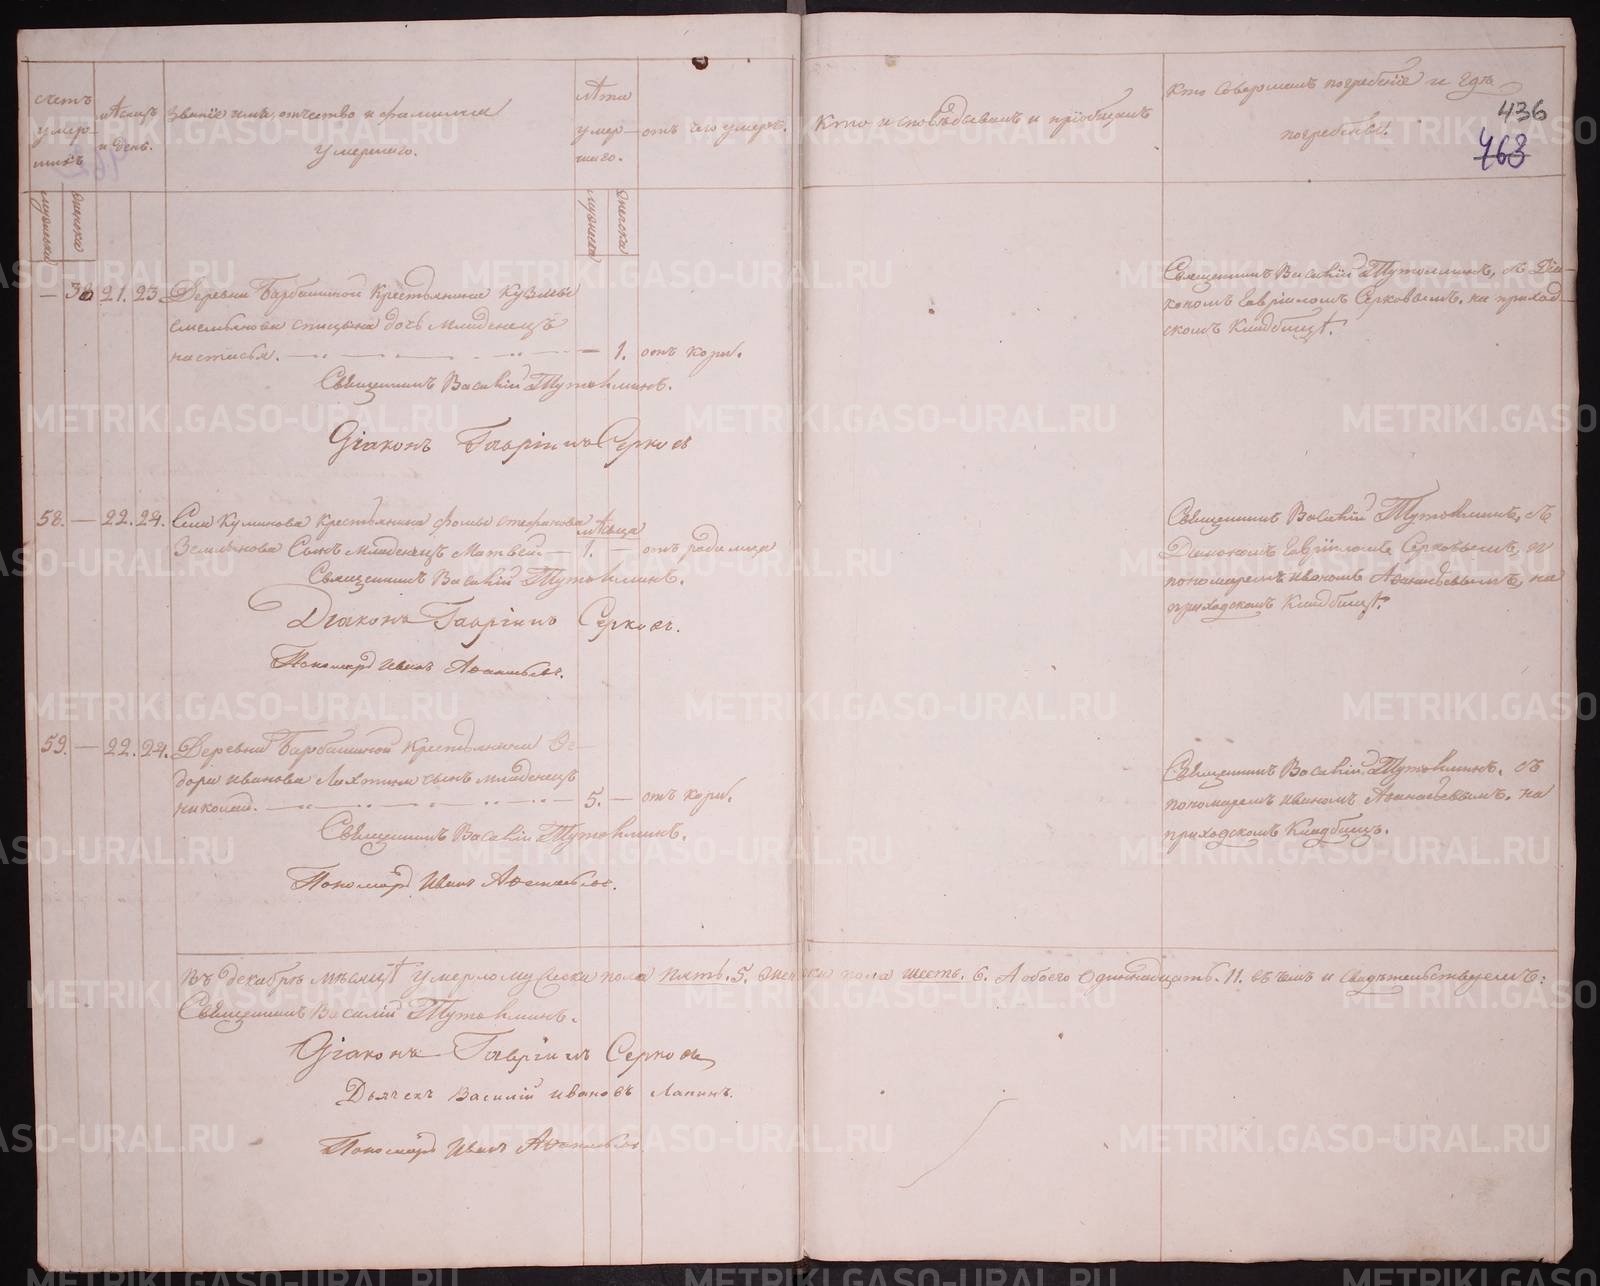 счетъ умер-
шихъ
мѣсяцъ
и день.
Званіе имя, отчество и фамилія
умершаго.
лѣта
умер-
шаго.
отъ чего умеръ.
Кто исповѣдывалъ и пріобщалъ
Кто совершалъ погребеніе и гдѣ
погребены.
436
463
мужеска
женска
мужеска
женска
— 38 21. 23. Деревни Барбашиной Крестьянина Кузмы
Спицына дочь младенецъ
настасья. — 1. отъ кори.
Священникъ Василій Тутолминъ.
Діаконъ Гавріилъ Серковъ
Священникъ Василій Тутолминъ, съ Діа-
кономъ Гавріиломъ Серковымъ. на приход-
скомъ Кладбищѣ.
58. — 22. 24. Села Куминова Крестьянина Фомы Стефанова
мѣсяца
Сынъ младенецъ Матвей — 1. — отъ родимца
Священникъ Василій Тутолминъ.
Діаконъ Гавріилъ Серковъ.
Пономарь Иванъ Аѳанасьевъ.
Священникъ Василій Тутолминъ, съ
Діакономъ Гавріиломъ Серковымъ, и
пономаремъ Иваномъ Аѳанасьевымъ, на
приходскомъ Кладбищѣ.
59. — 22. 24. Деревни Барбашиной Крестьянина Ѳе-
дора Иванова сынъ младенецъ
николай. — 5. — отъ кори.
Священникъ Василій Тутолминъ.
Пономарь Иванъ Аѳанасьевъ.
Священникъ Василій Тутолминъ. съ
пономаремъ Иваномъ Аѳанасьевымъ. на
приходскомъ Кладбищѣ.
въ декабрѣ мѣсяцѣ умерло мужеска пола пять. 5. женска пола шесть. 6. А обоего одинадцать. 11. въ чемъ и свидѣтельствуемъ:
Священникъ Василій Тутолминъ.
Діаконъ Гавріилъ Серковъ
Дьячекъ Василій Ивановъ Лапинъ.
Пономарь Иванъ Аѳанасьевъ
METRIKI.GASO-URAL.RU